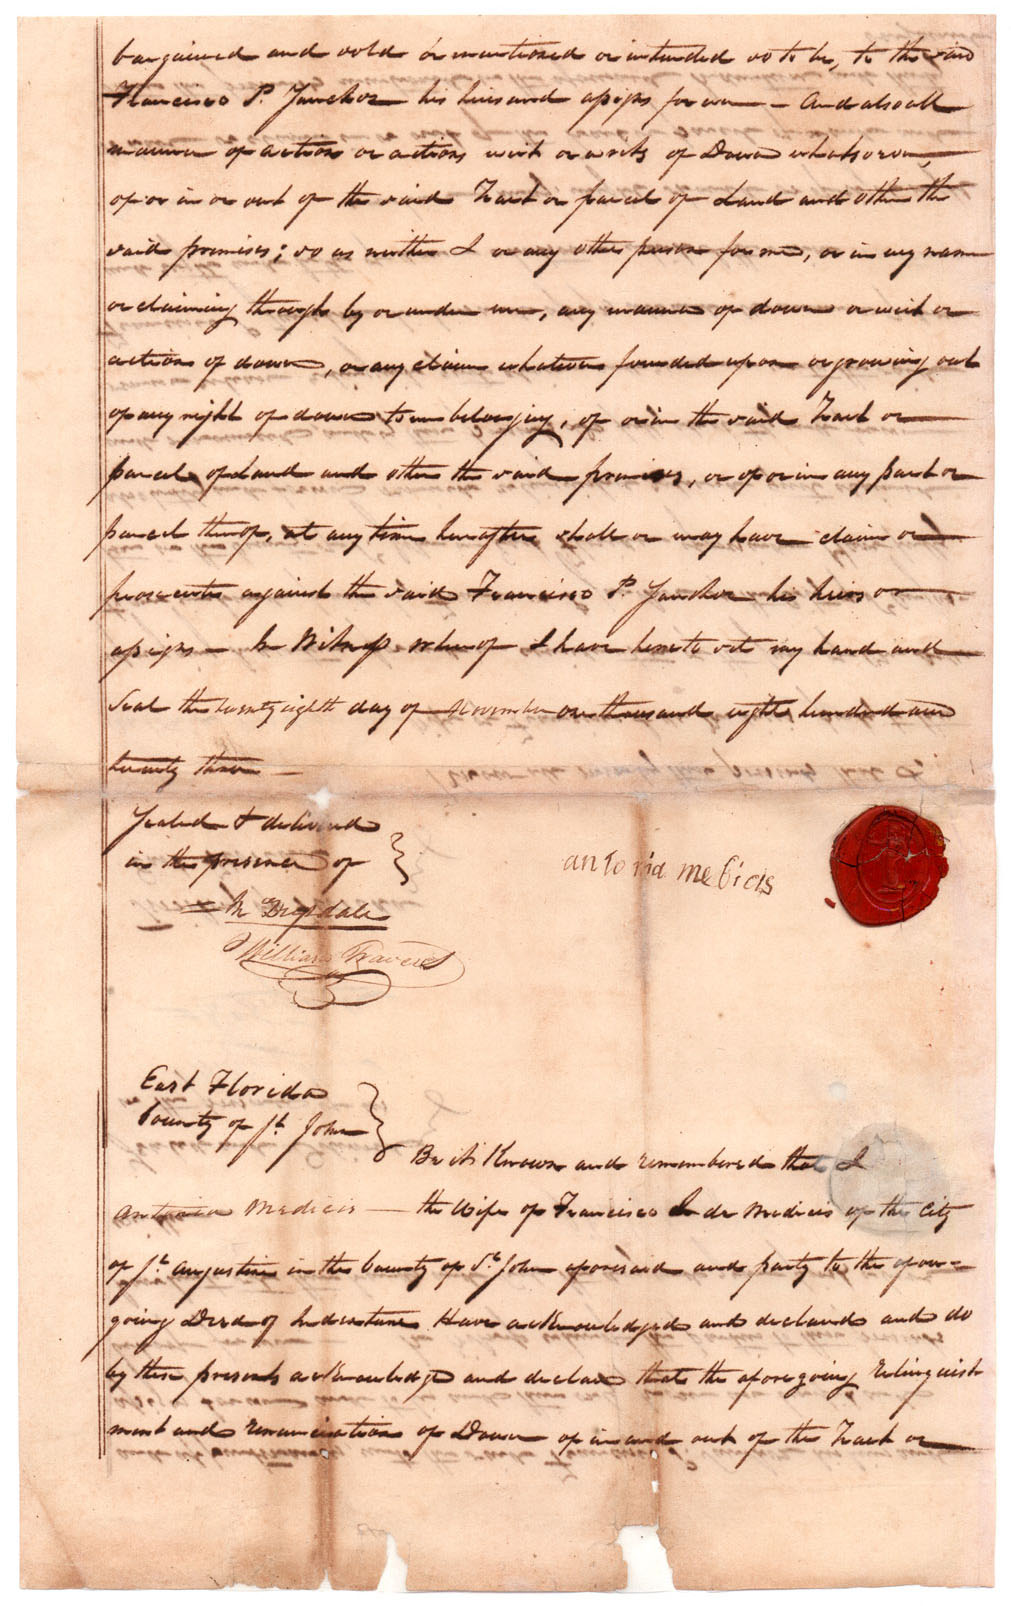 bargained and sold or mentioned or intended so to be, to the said
Francisco P. Sanchez his heirs and assigns forever — And also all
manner of action or actions writ or writs of Dower whatsoever,
of or in or out of the said Tract or parcel of Land and other the
said premises; so as neither I or any other person for me, or in my name
or claiming through by or under me, any manner of dower or writ or
action of dower, or any claim whatever founded upon or growing out
of any right of dower to me belonging, of or in the said Tract or
parcel of Land and other the said premises, or of or in any part or
parcel thereof, at any time hereafter shall or may have claim or
prosecute against the said Francisco P. Sanchez his heirs or
assigns — In Witness whereof I have hereto set my hand and
Seal the twenty eighth day of November one thousand eight hundred and
twenty three —
Sealed & delivered
in the presence of
antonia medicis
William Travers
East Florida
County of St. John
Be it Known and remembered that I
Antonia Medicis — the Wife of Francisco J. de Medicis of the City
of St. Augustine in the County of St. John aforesaid and party to the afore=
going Deed of Indenture Have acknowledged and declared and do
by these presents acknowledge and declare that the aforegoing relinquish
ment and renunciation of Dower of in and out of the Tract or